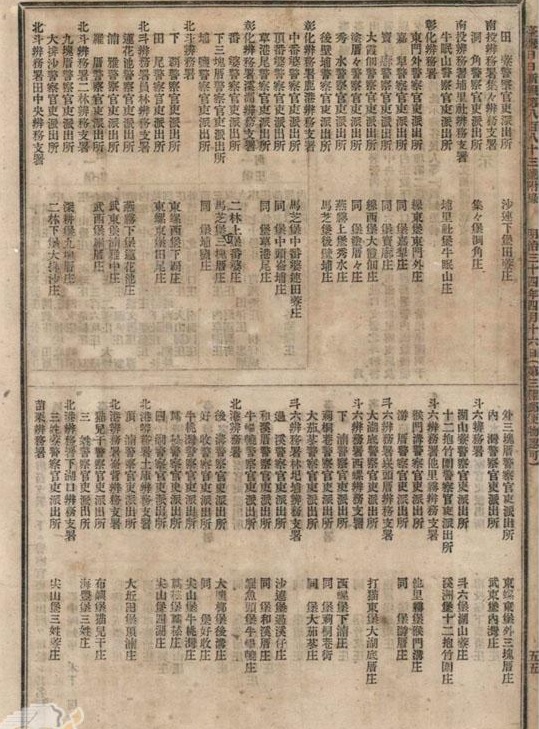 田藔警察官吏派出所 沙連下堡田藔庄
南投辨務署集々辨務支署
洞角警察官吏派出所 集々堡洞角庄
南投辨務署埔里社辨務支署
牛眠山警察官吏派出所 埔里社堡牛眠山庄
彰化辨務署
東門外警察官吏派出所 線東堡東門外庄
嘉犁警察官吏派出所 同堡嘉犁庄
寶廍警察官吏派出所 同堡寶廍庄
大霞佃警察官吏派出所 線西堡大霞佃庄
塗厝々警察官吏派出所 同堡塗厝々庄
秀水警察官吏派出所 燕霧上堡秀水庄
後壁埔警察官吏派出所 馬芝堡後壁埔庄
彰化辨務署鹿港辨務支署
中番婆警察官吏派出所 馬芝堡中番婆庄
頂番婆警察官吏派出所
草港尾警察官吏派出所 同堡草港尾庄
彰化辨務署溪湖辨務支署
番婆警察官吏派出所 二林上堡番婆庄
下三塊厝警察官吏派出所 馬芝堡三塊厝庄
埔鹽警察官吏派出所 同堡埔鹽庄
北斗辨務署
下霸警察官吏派出所 東螺西堡下霸庄
田尾警察官吏派出所 東螺東堡田尾庄
北斗辨務署員林辨務支署
蓮花池警察官吏派出所 燕霧下堡蓮花池庄
湳雅警察官吏派出所 武東堡湳雅中庄
羅厝警察官吏派出所 武西堡羅厝庄
北斗辨務署二林辨務支署
九塊厝警察官吏派出所 深耕堡九塊厝庄
大排沙警察官吏派出所 二林下堡大排沙庄
北斗辨務署田中央辨務支署
外三塊厝警察官吏派出所 東螺東堡外三塊厝庄
內灣警察官吏派出所 武東堡內灣庄
斗六辨務署
湖山藔警察官吏派出所 斗六堡湖山藔庄
十二抱竹圍警察官吏派出所 溪洲堡十二抱竹圍庄
斗六辨務署他里霧辨務支署
猴悶溝警察官吏派出所 他里霧堡猴悶溝庄
斗六辨務署崁頭厝辨務支署
大湖底警察官吏派出所 打猫東堡大湖底厝庄
斗六辨務署西螺辨務支署
下湳警察官吏派出所 西螺堡下湳庄
莿桐巷警察官吏派出所 同堡莿桐巷街
大茄苳警察官吏派出所 同堡大茄苳庄
斗六辨務署林圯埔辨務支署
過溪警察官吏派出所 沙連堡過溪仔庄
和溪厝警察官吏派出所 同堡和溪厝庄
北港辨務署
後溝警察官吏派出所 大槺榔堡後溝庄
好收警察官吏派出所 同堡好收庄
牛桃灣警察官吏派出所 尖山堡牛桃灣庄
北港辨務署土庫辨務支署
頂湳警察官吏派出所 大坵田堡頂湳庄
北港辨務署崙背辨務支署
猫兒干警察官吏派出所 布嶼堡猫兒干庄
三姓警察官吏派出所 海豐堡三姓庄
北港辨務署下湖口辨務支署
三姓藔警察官吏派出所 尖山堡三姓藔庄
苗栗辨務署
五五